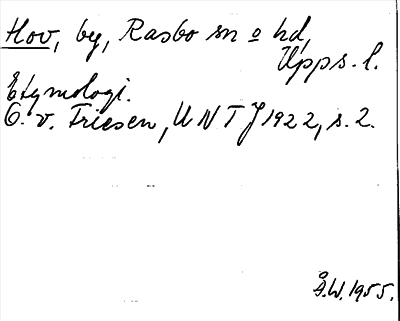 Hov, by, Rasbo sn o hd,
Upps. l.
Etymologi.
O. v. Friesen, UNT J 1922, s. 2.
Å.W. 1955.